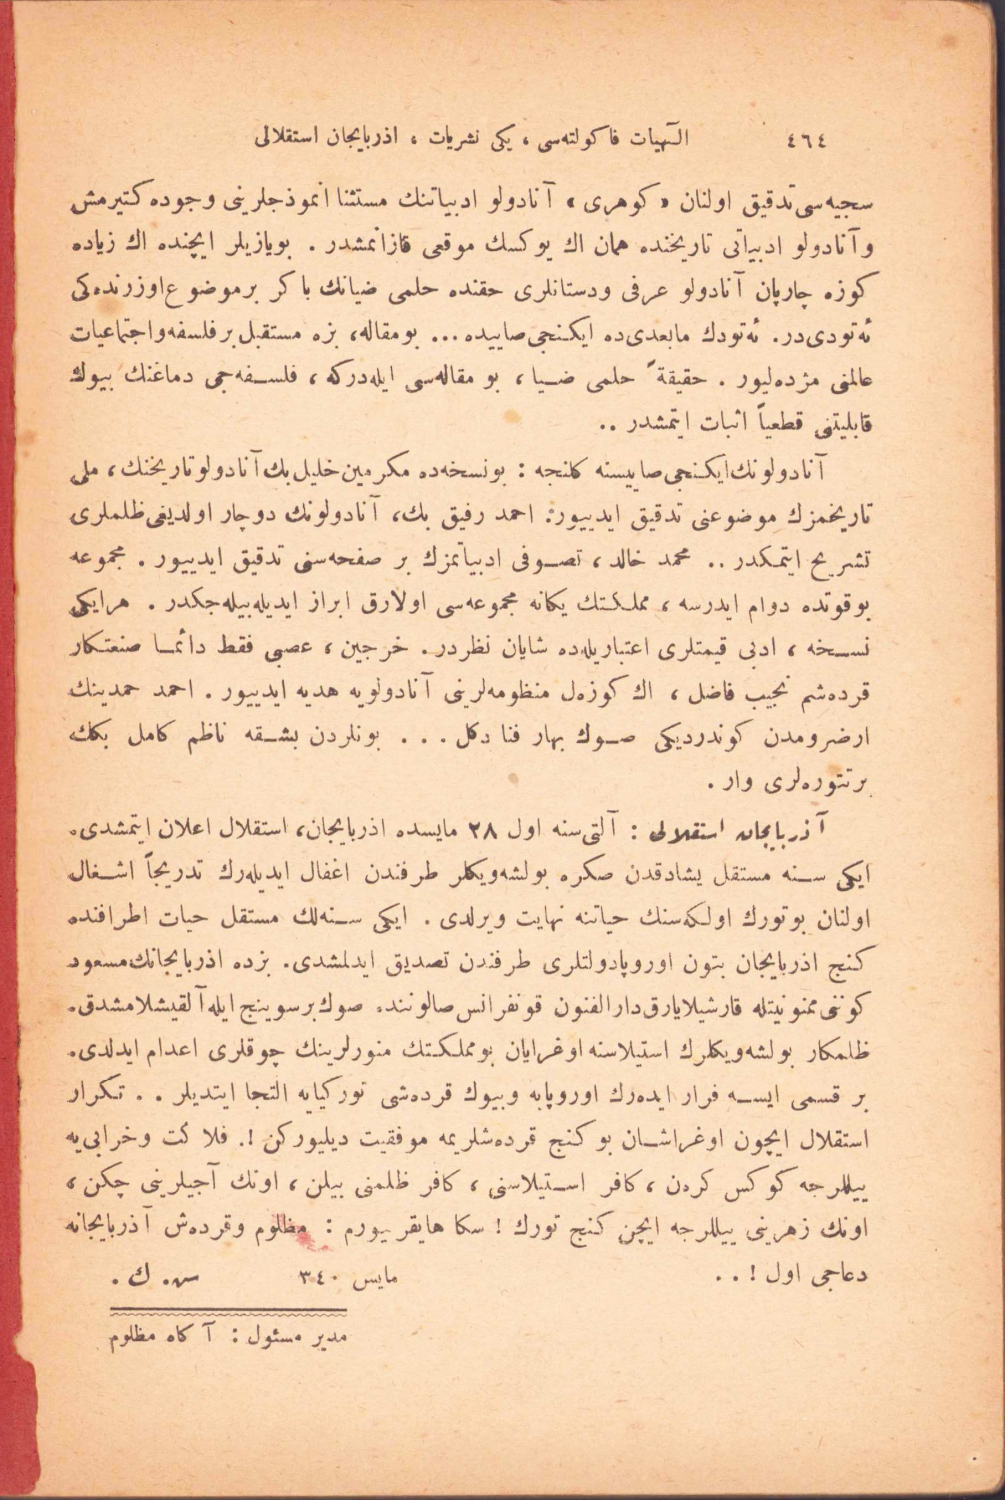 ٤٦٤ الٓهیات فاكولته‌سی ، یكی نشریات ، اذربایجان استقلالی
سجیه‌سی تدقیق اولنان « كوهری » آنادولو ادبیاتنك مستثنا انموذجلرینی وجوده كتیرمش
و آنادولو ادبیاتی تاریخنده همان اك یوكسك موقعی قازانمشدر . بویازیلر ایچنده اك زیاده
كوزه چارپان آنادولو عرفی ودستانلری حقنده حلمی ضیانك باكر برموضوع اوزرنده‌كی
ئه‌تودی‌در. ئه‌تودك مابعدی‌ده ایكنجی صاییده ... بومقاله، بزه مستقبل بر فلسفه واجتماعیات
عالمنی مژده‌لیور . حقیقةً حلمی ضیا ، بو مقاله‌سی ایله‌دركه ، فلسفه‌جی دماغنك بیوك
قابلیتنی قطعیاً اثبات ایتمشدر ..
آنادولونك ایكنجی صاییسنه كلنجه : بونسخه‌ده مكرمین خلیل بك آنادولو تاریخنك، ملی
تاریخمزك موضوعنی تدقیق ایدییور. احمد رفیق بك، آنادولونك دوچار اولدیغی ظلملری
تشریح ایتمكدر .. محمد خالد ، تصوفی ادبیاتمزك بر صفحه‌سنی تدقیق ایدییور . مجموعه
بوقوتده دوام ایدرسه ، مملكتك یكانه مجموعه‌سی اولارق ابراز ایدیله‌بیله‌جكدر . هرایكی
نسخه ، ادبی قیمتلری اعتباریله‌ده شایان نظردر. خرجین ، عصبی فقط دائما صنعتكار
قرده‌شم نجیب فاضل ، اك كوزه‌ل منظومه‌لرینی آنادولویه هدیه ایدییور . احمد حمدینك
ارضرومدن كوندردیكی صوك بهار فنا دكل . . . بونلردن بشقه ناظم كامل بكك
برتتوره‌لری وار .
آذربایجان استقلالی : آلتی سنه اول ٢٨ مایسده اذربایجان، استقلال اعلان ایتمشدی.
ایكی سنه مستقل یشادقدن صكره بولشه‌ویكلر طرفندن اغفال ایدیله‌رك تدریجاً اشغال
اولنان بو تورك اولكه‌سنك حیاتنه نهایت ویرلدی . ایكی سنه‌لك مستقل حیات اطرافنده
كنج اذربایجان بتون اوروپا دولتلری طرفندن تصدیق ایدلمشدی. بزده اذربایجانك مسعود
كوننی ممنونیتله قارشیلایارق دارالفنون قونفرانس صالوننده صوك برسوینج ایله آلقیشلامشدق.
ظلمكار بولشه‌ویكلرك استیلاسنه اوغرایان بو مملكتك منورلرینك چوقلری اعدام ایدلدی.
بر قسمی ایسه فرار ایده‌رك اوروپایه وبیوك قرده‌شی توركیایه التجا ایتدیلر . . تكرار
استقلال ایچون اوغراشان بو كنج قرده‌شلریمه موفقیت دیلیوركن !. فلاكت وخرابی‌یه
ییللرجه كوكس كرن ، كافر استیلاسنی ، كافر ظلمنی بیلن ، اونك آجیلرینی چكن ،
اونك زهرینی ییللرجه ایچن كنج تورك ! سكا هایقریورم : مظلوم وقرده‌ش آذربایجانه
دعاجی اول ! . .
مایس ٣٤٠ س. ك .
مدیر مسئول : آكاه مظلوم